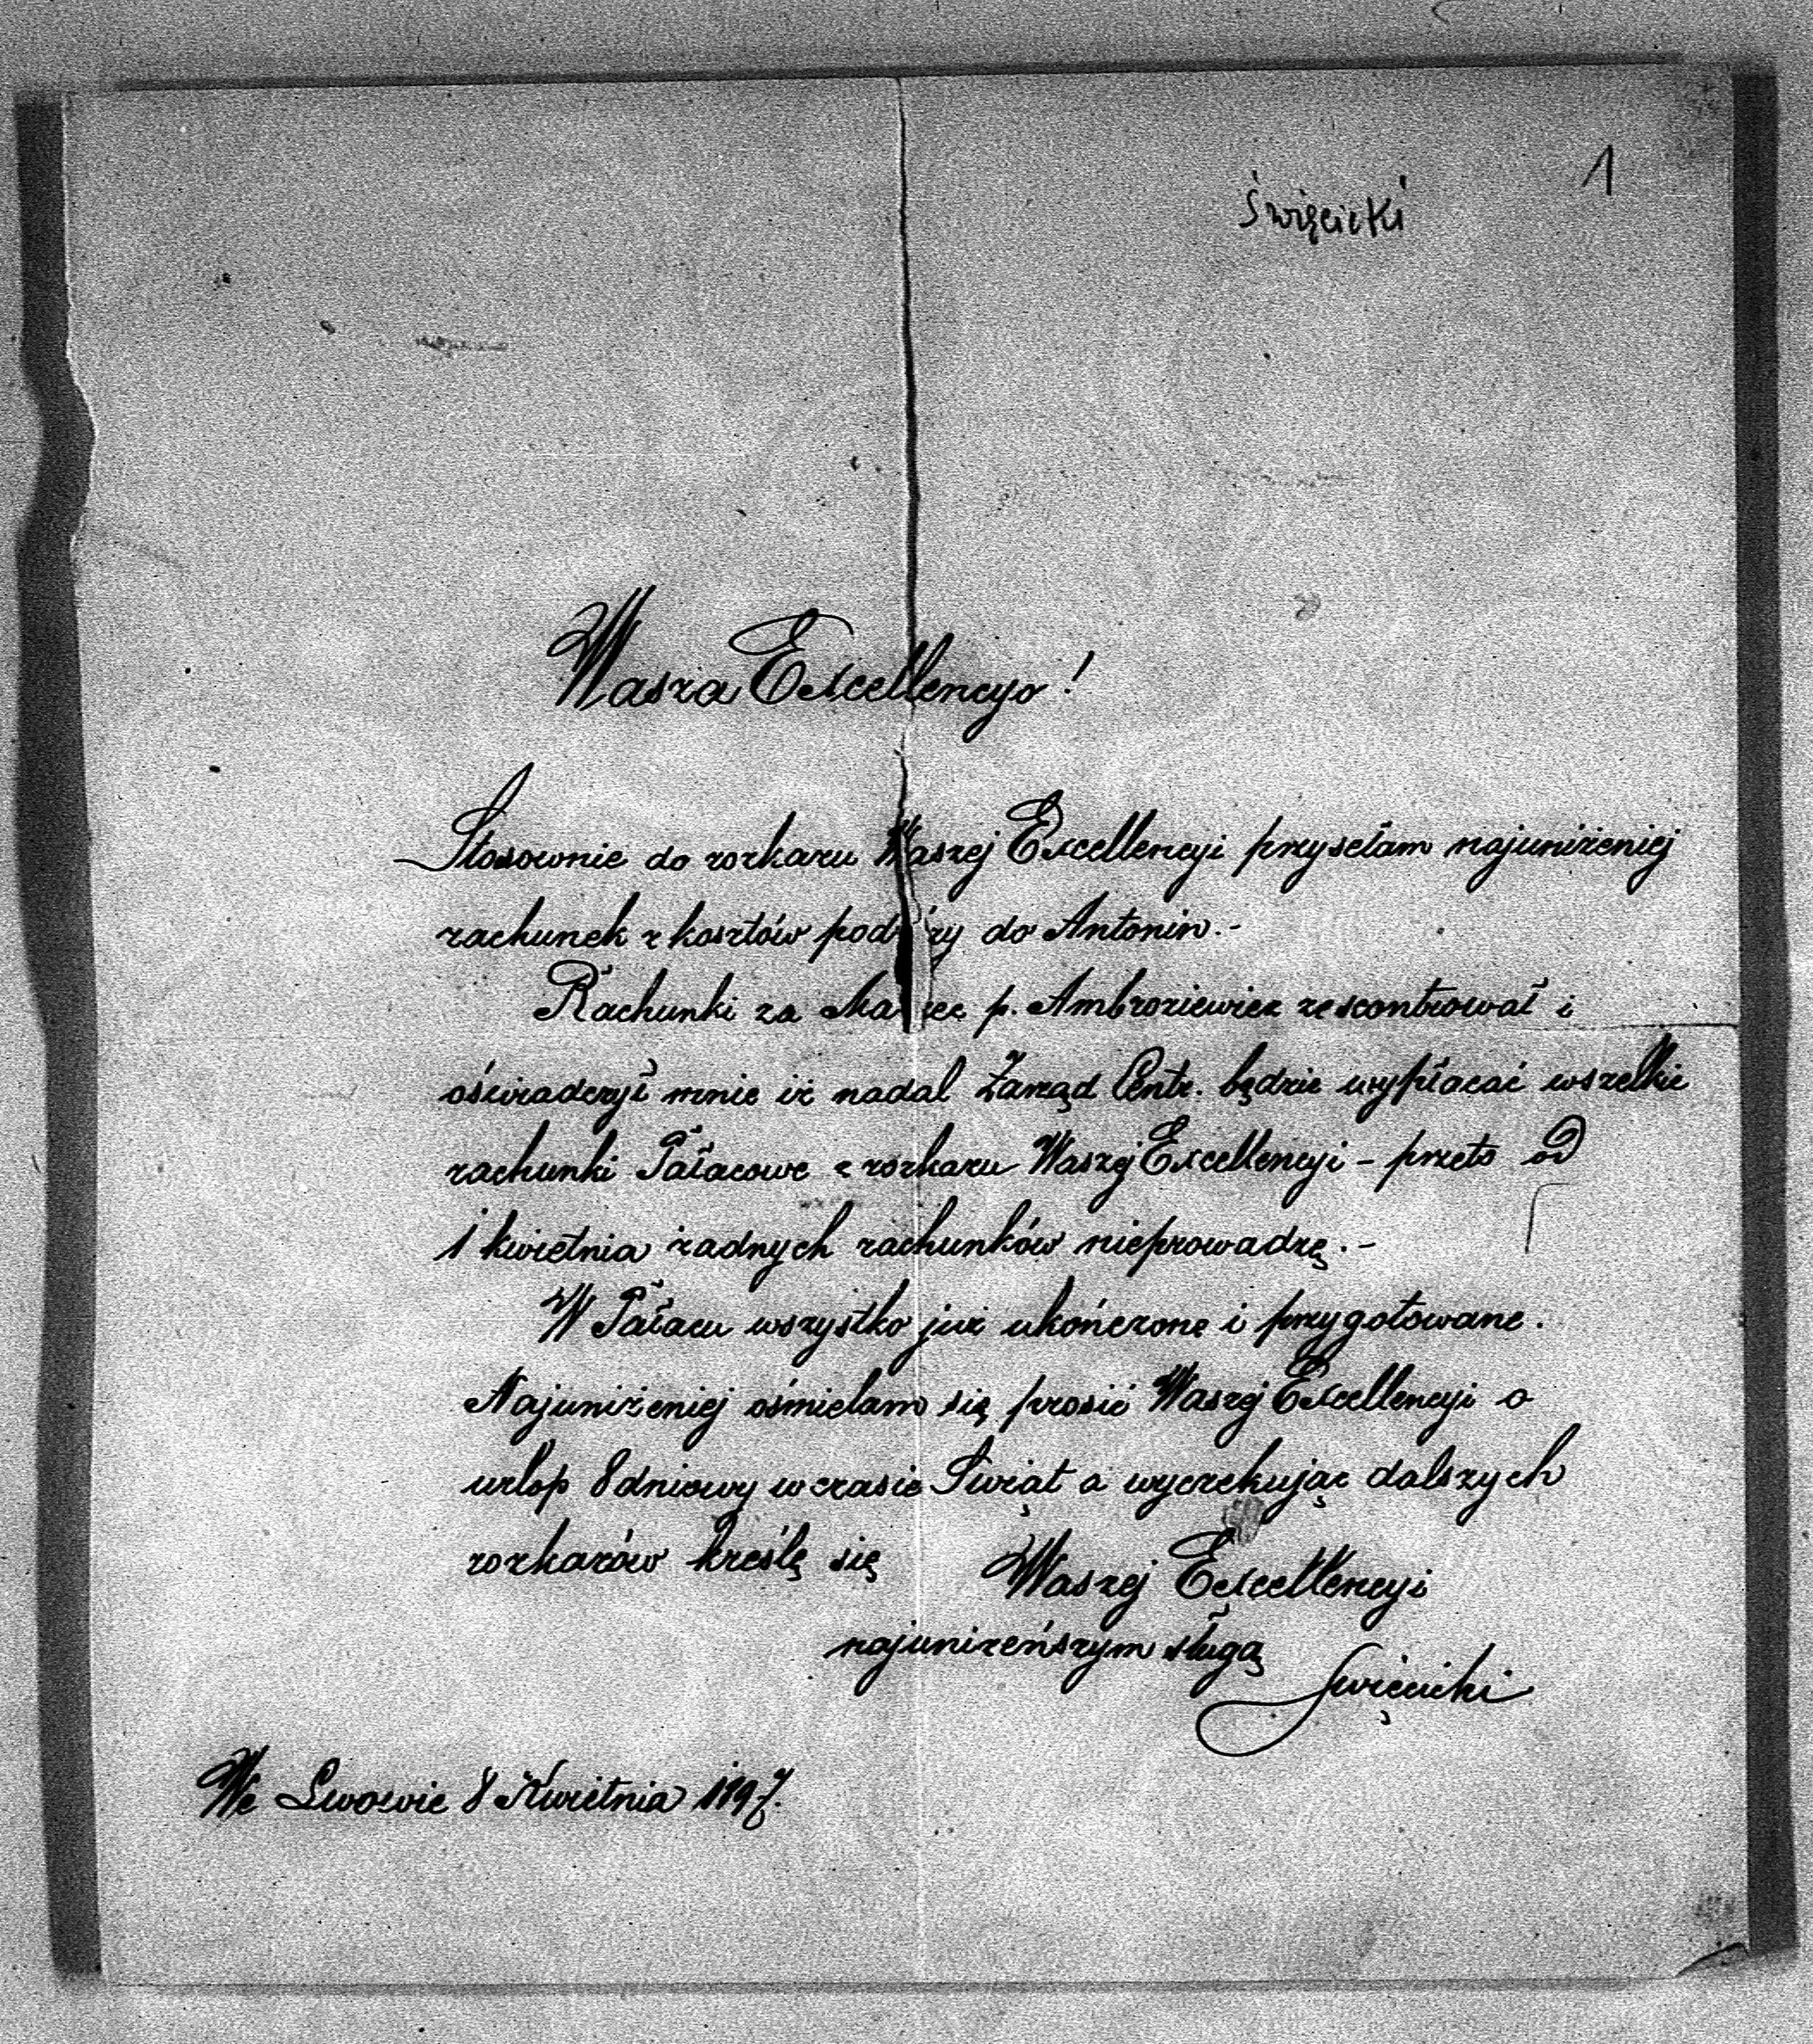 1
Święcicki
Wasza Excellencyo!
Stosownie do rozkazu Waszej Excellencyi przysełam najuniżeniej
rachunek z kosztów podróży do Antonin.-
Rachunki za Marzec p. Ambroziewicz zescontrował i
oświadczył mnie iż nadal Zarząd Centr. będzie wypłacać wszelkie
rachunki Pałacowe z rozkazu Waszej Excellencyi - przeto od
1 kwietnia żadnych rachunków nieprowadzę.-
W Pałacu wszystko już ukończone i przygotowane.
Najuniżeniej ośmielam się prosić Waszej Excellencyi o
urlop 8 dniowy w czasie Świąt a wyczekując dalszych
rozkazów kreślę się
Waszej Excellencyi
najuniżeńszym sługą
Święcicki
We Lwowie 8 Kwietnia 1897.